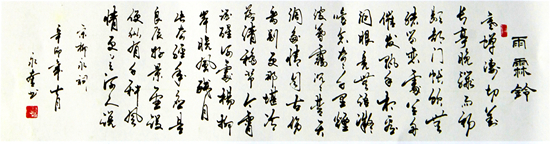 雨霖鈴
寒蟬凄切對
長亭晚驟雨初
歇都門帳飲無
緒留戀處蘭舟
催發執手相看
淚眼竟無語凝
噎念去去千里煙
波暮靄沉沉楚天
闊多情自古傷
離別更那堪冷
落清秋節今宵
酒醒何處楊柳
岸曉風殘月
此去經年應是
良辰好景虛設
便縱有千種風
情更與何人說
宋柳永詞
辛卯年十月